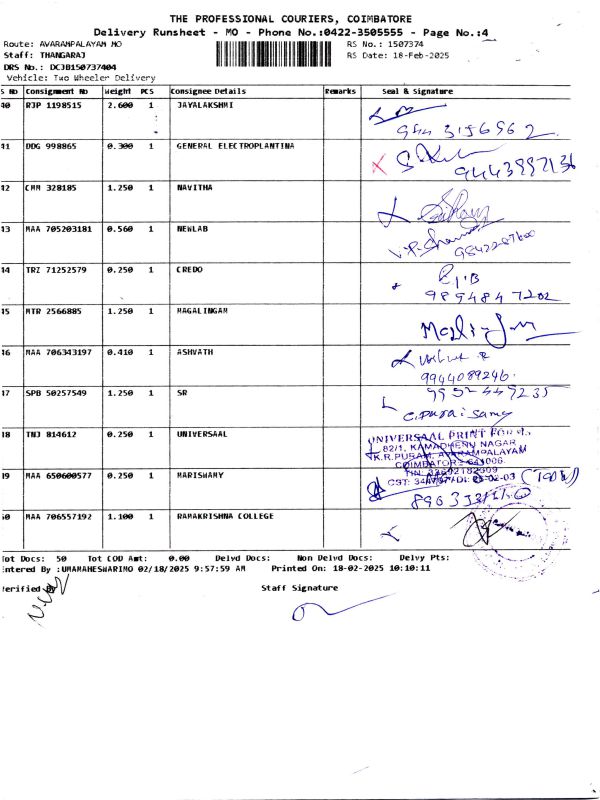 THE PROFESSIONAL COURIERS, COIMBATORE
Delivery Runsheet - MO - Phone No.:0422-3505555 - Page No.:4
Route: AVARAMPALAYAM MO RS No.: 1507374
Staff: THANGARAJ RS Date: 18-Feb-2025
DRS No.: DCJB150737404
Vehicle: Two Wheeler Delivery
S No Consignment No Weight PCS Consignee Details Remarks Seal & Signature
40 RJP 1198515 2.600 1 JAYALAKSHMI
944 3156962
41 DDG 998865 0.300 1 GENERAL ELECTROPLANTINA
9443997136
42 CMM 328185 1.250 1 NAVITHA
43 MAA 705203181 0.560 1 NEWLAB
44 TRZ 71252579 0.250 1 CREDO
9894847202
45 MTR 2566885 1.250 1 MAGALINGAM
46 MAA 706343197 0.410 1 ASHVATH
9944089246
47 SPB 50257549 1.250 1 SR
C. Durai samy
48 TNJ 814612 0.250 1 UNIVERSAAL
UNIVERSAAL PRINT FORMS
82/1, KAMADHENU NAGAR
K.R.PURAM, AVARAMPALAYAM
COIMBATORE 641006.
49 MAA 650600577 0.250 1 MARISHAMY
50 MAA 706557192 1.100 1 RAMAKRISHNA COLLEGE
Tot Docs: 50 Tot COD Amt: 0.00 Delvd Docs: Non Delvd Docs: Delvy Pts:
Entered By :UMAMAHESWARIMO 02/18/2025 9:57:59 AM Printed On: 18-02-2025 10:10:11
Verified By Staff Signature